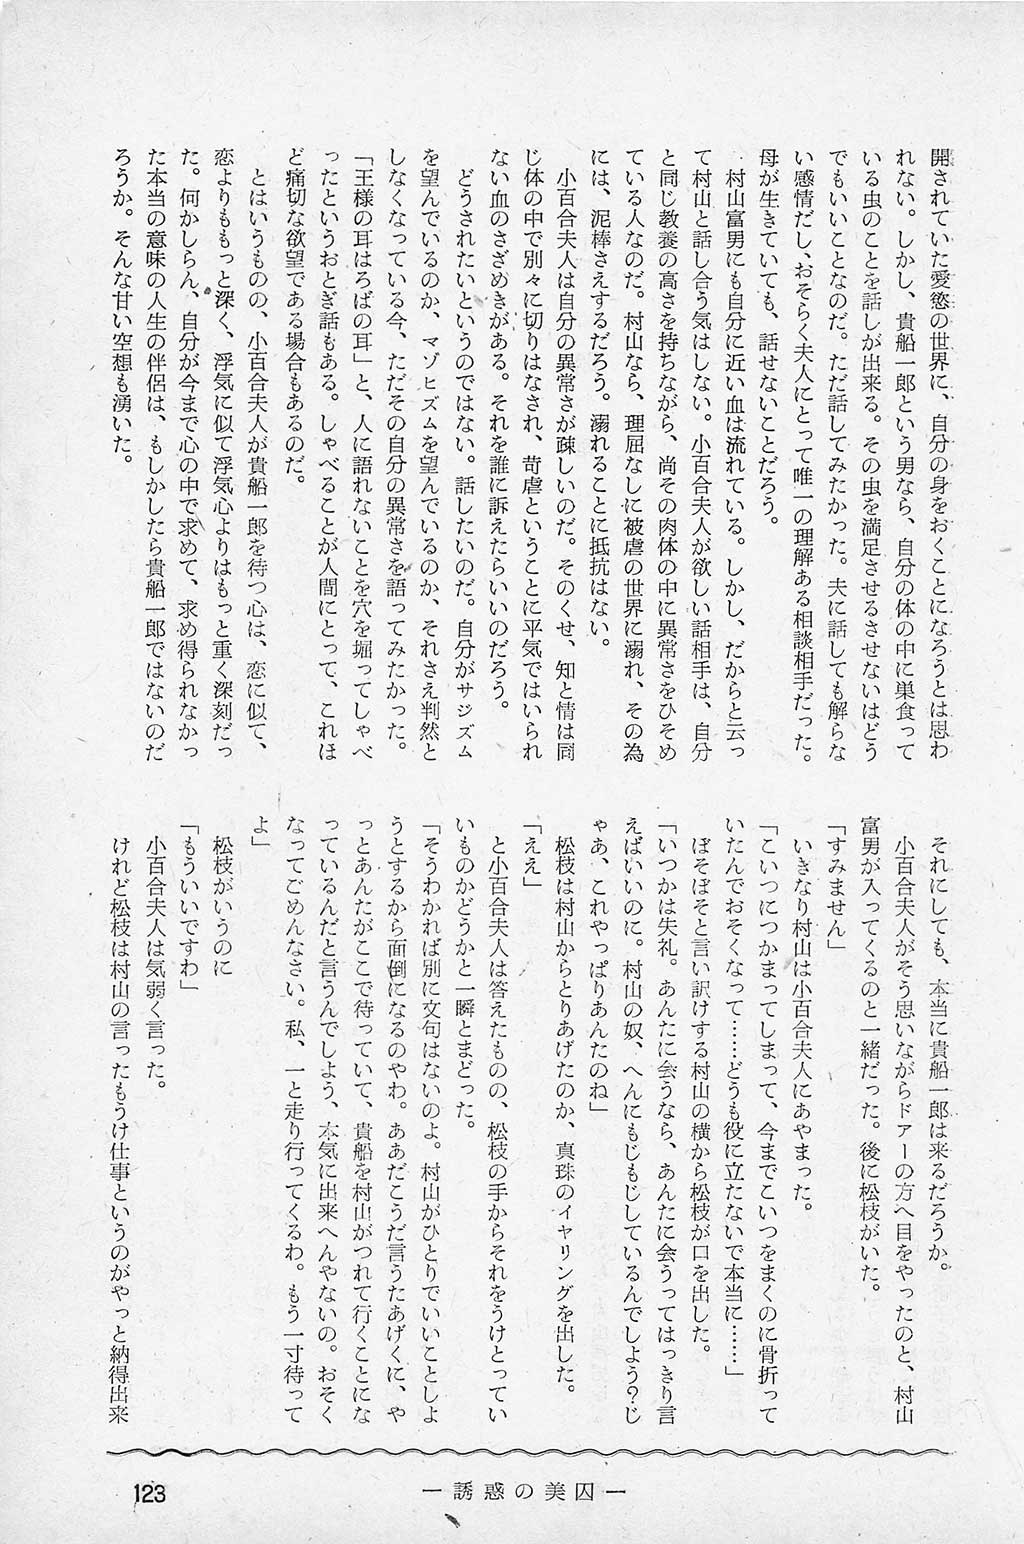 開されていた愛慾の世界に、自分の身をおくことになろうとは思わ
れない。しかし、貴船一郎という男なら、自分の体の中に巣食って
いる虫のことを話しが出来る。その虫を満足させるさせないはどう
でもいいことなのだ。ただ話してみたかった。夫に話しても解らな
い感情だし、おそらく夫人にとって唯一の理解ある相談相手だった。
母が生きていても、話せないことだろう。
村山富男にも自分に近い血は流れている。しかし、だからと云っ
て村山と話し合う気はしない。小百合夫人が欲しい話相手は、自分
と同じ教養の高さを持ちながら、尚その肉体の中に異常さをひそめ
ている人なのだ。村山なら、理屈なしに被虐の世界に溺れ、その為
には、泥棒さえするだろう。溺れることに抵抗はない。
小百合夫人は自分の異常さが疎しいのだ。そのくせ、知と情は同
じ体の中で別々に切りはなされ、苛虐ということに平気ではいられ
ない血のさざめきがある。それを誰に訴えたらいいのだろう。
どうされたいというのではない。話したいのだ。自分がサジズム
を望んでいるのか、マゾヒズムを望んでいるのか、それさえ判然と
しなくなっている今、ただその自分の異常さを語ってみたかった。
「王様の耳はろばの耳」と、人に語れないことを穴を堀ってしゃべ
ったというおとぎ話もある。しゃべることが人間にとって、これほ
ど痛切な欲望である場合もあるのだ。
とはいうものの、小百合夫人が貴船一郎を待つ心は、恋に似て、
恋よりももっと深く、浮気に似て浮気心よりはもっと重く深刻だっ
た。何かしらん、自分が今まで心の中で求めて、求め得られなかっ
た本当の意味の人生の伴侶は、もしかしたら貴船一郎ではないのだ
ろうか。そんな甘い空想も湧いた。
それにしても、本当に貴船一郎は来るだろうか。
小百合夫人がそう思いながらドアーの方へ目をやったのと、村山
富男が入ってくるのと一緒だった。後に松枝がいた。
「すみません」
いきなり村山は小百合夫人にあやまった。
「こいつにつかまってしまって、今までこいつをまくのに骨折って
いたんでおそくなって……どうも役に立たないで本当に……」
ぼそぼそと言い訳けする村山の横から松枝が口を出した。
「いつかは失礼。あんたに会うなら、あんたに会うってはっきり言
えばいいのに。村山の奴、へんにもじもじしているんでしよう？じ
ゃあ、これやっぱりあんたのね」
松枝は村山からとりあげたのか、真珠のイヤリングを出した。
「ええ」
と小百合夫人は答えたものの、松枝の手からそれをうけとってい
いものかどうかと一瞬とまどった。
「そうわかれば別に文句はないのよ。村山がひとりでいいことしよ
うとするから面倒になるのやわ。ああだこうだ言うたあげくに、や
っとあんたがここで待っていて、貴船を村山がつれて行くことにな
っているんだと言うんでしよう、本気に出来へんやないの。おそく
なってごめんなさい。私、一と走り行ってくるわ。もう一寸待って
よ」
松枝がいうのに
「もういいですわ」
小百合夫人は気弱く言った。
けれど松枝は村山の言ったもうけ仕事というのがやっと納得出来
― 誘惑の美囚 ―
123